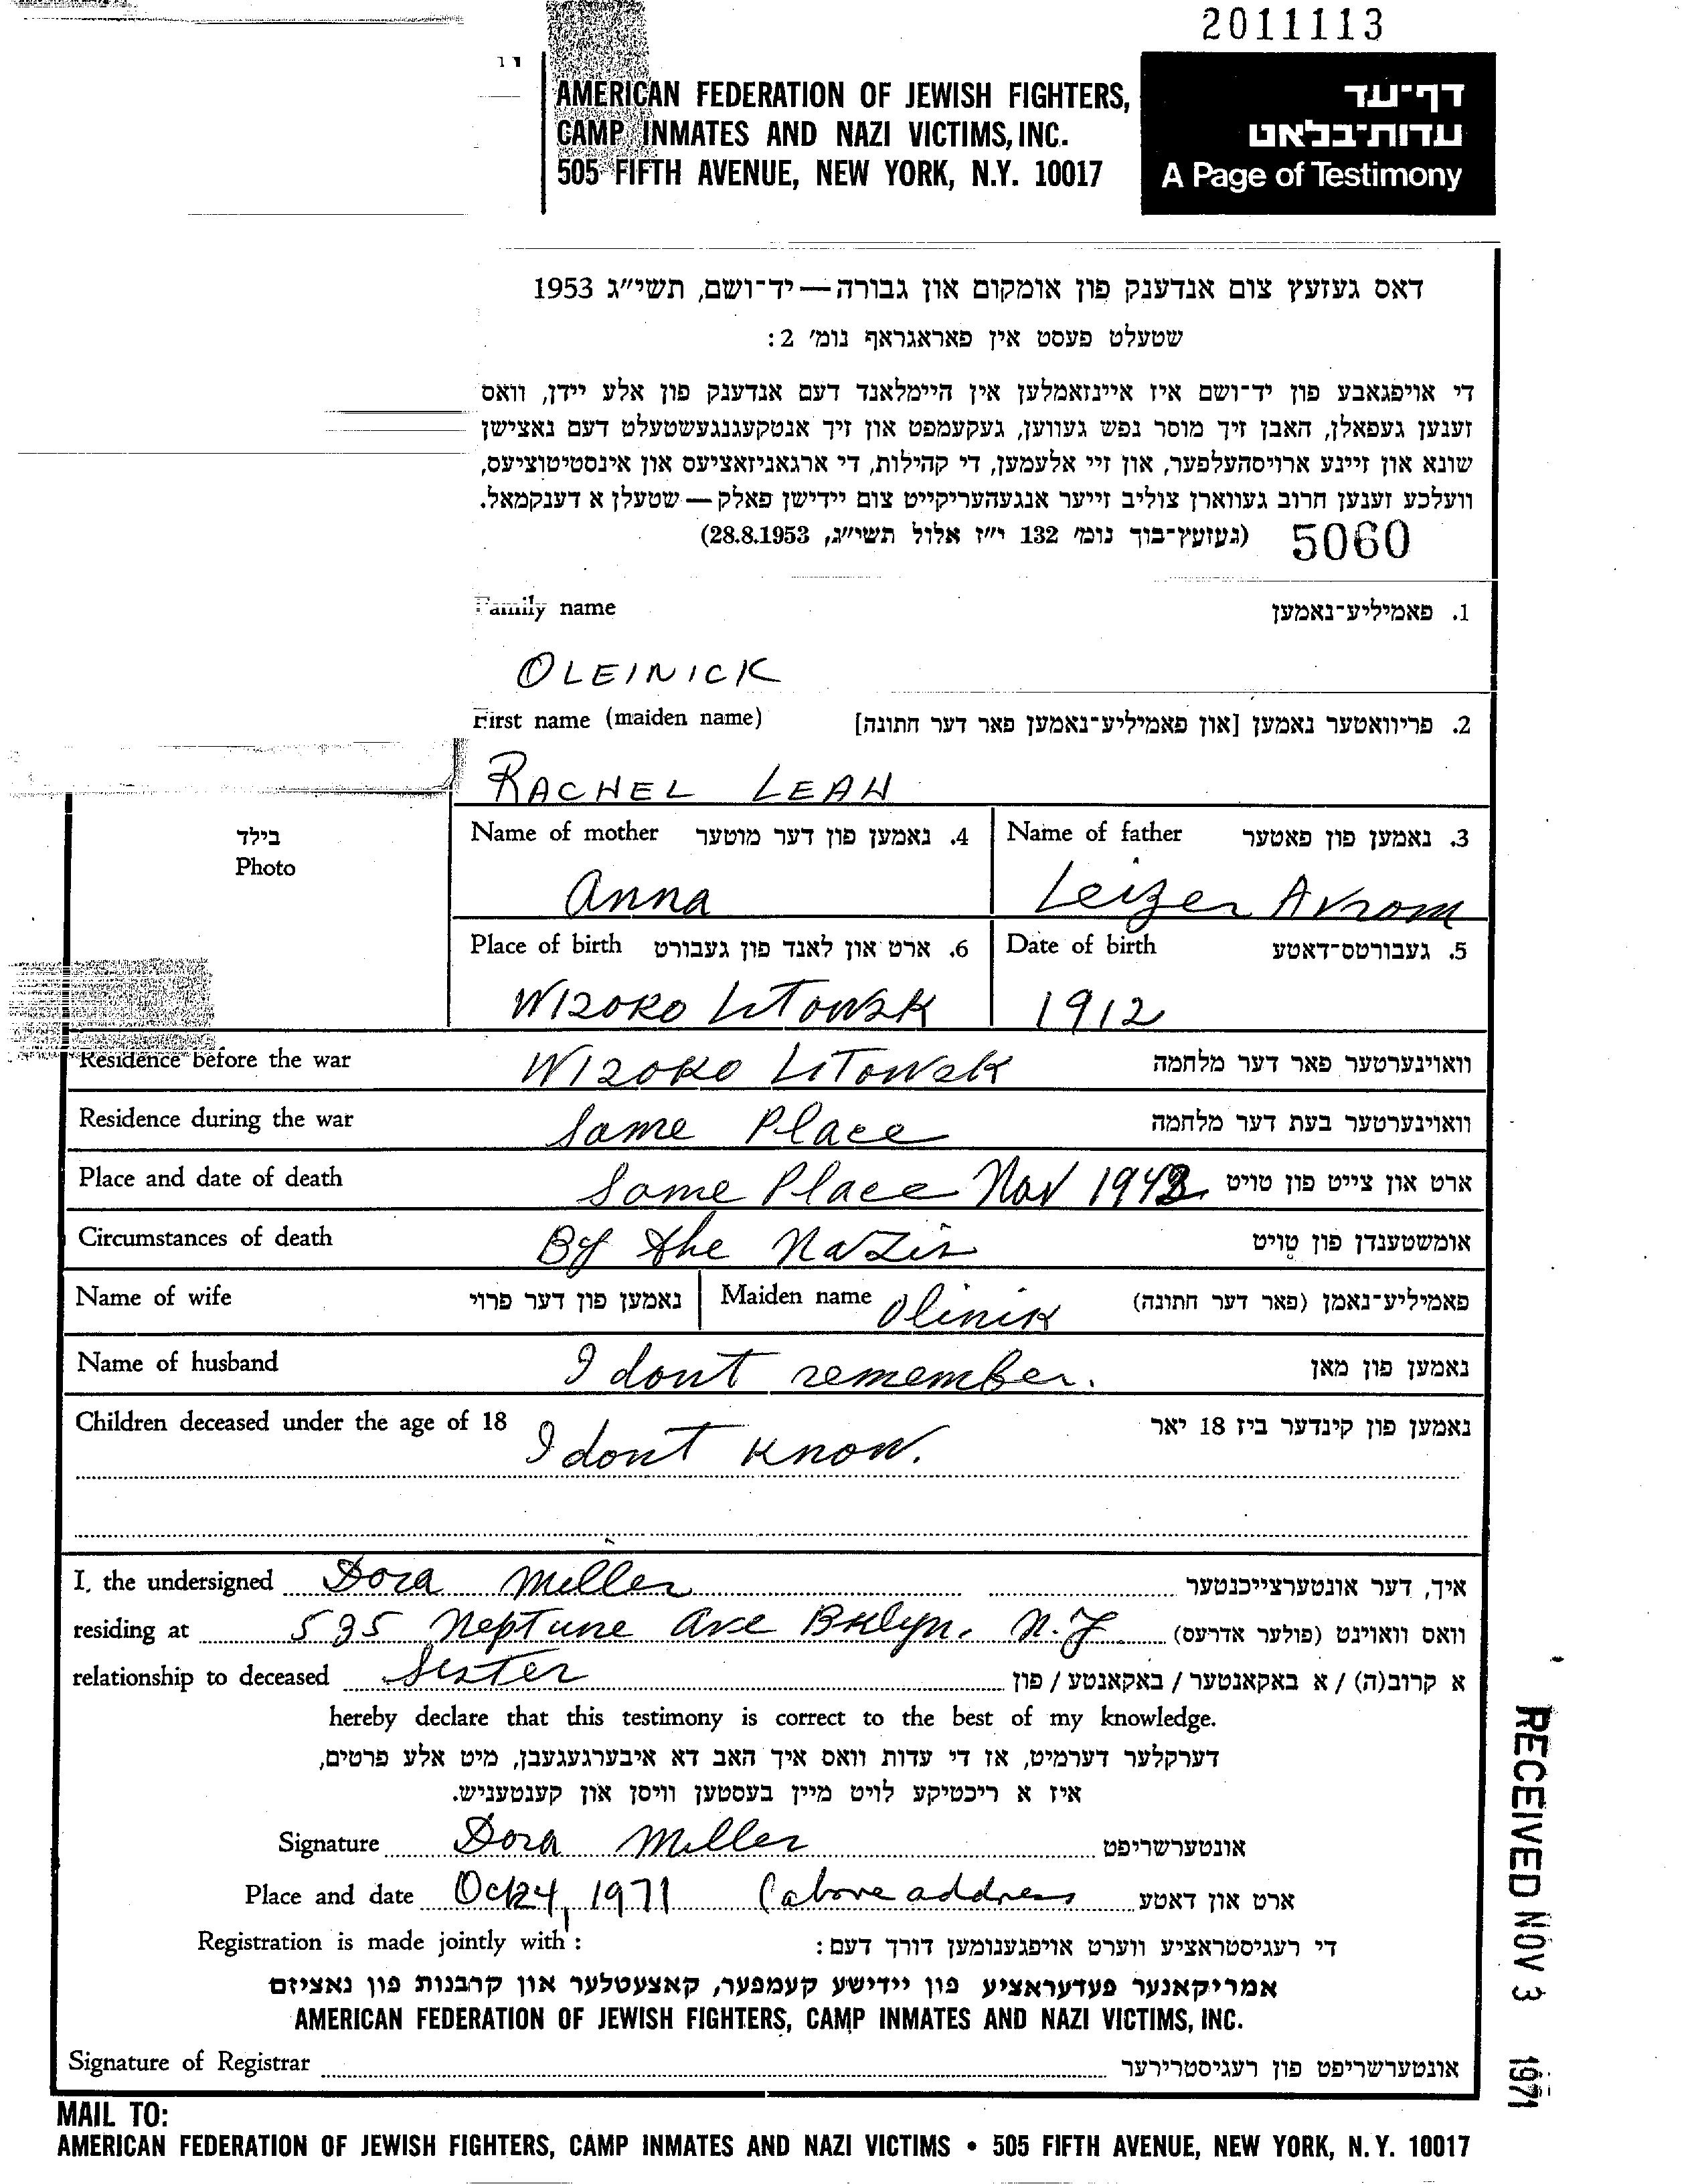 2011113
AMERICAN FEDERATION OF JEWISH FIGHTERS,
CAMP INMATES AND NAZI VICTIMS, INC.
505 FIFTH AVENUE, NEW YORK, N.Y. 10017
דף־עד
עדות־בלאט
A Page of Testimony
דאס געזעץ צום אנדענק פון אומקום און גבורה — יד־ושם, תשי״ג 1953
שטעלט פעסט אין פאראגראף נומ׳ 2:
די אויפגאבע פון יד־ושם איז איינזאמלען אין היימלאנד דעם אנדענק פון אלע יידן, וואס
זענען געפאלן, האבן זיך מוסר נפש געווען, געקעמפט און זיך אנטקעגנגעשטעלט דעם נאצישן
שונא און זיינע ארויסהעלפער, און זיי אלעמען, די קהילות, די ארגאניזאציעס און אינסטיטוציעס,
וועלכע זענען חרוב געווארן צוליב זייער אנגעהעריקייט צום יידישן פאלק — שטעלן א דענקמאל.
(געזעץ־בוך נומ׳ 132 י״ז אלול תשי״ג, 28.8.1953)
5060
Family name 1. פאמיליע־נאמען
OLEINICK
First name (maiden name) 2. פריוואטער נאמען [און פאמיליע־נאמען פאר דער חתונה]
RACHEL LEAH
בילד
Photo
Name of mother 4. נאמען פון דער מוטער Name of father 3. נאמען פון פאטער
Anna Leizer Avrom
Place of birth 6. ארט און לאנד פון געבורט Date of birth 5. געבורטס־דאטע
WIZOKO LITOWSK 1912
Residence before the war WIZOKO LITOWSK וואוינערטער פאר דער מלחמה
Residence during the war Same Place וואוינערטער בעת דער מלחמה
Place and date of death Same Place Nov 1942 ארט און צייט פון טויט
Circumstances of death By the Nazis אומשטענדן פון טויט
Name of wife נאמען פון דער פרוי Maiden name Olinik פאמיליע־נאמן (פאר דער חתונה)
Name of husband I dont remember. נאמען פון מאן
Children deceased under the age of 18 I dont know. נאמען פון קינדער ביז 18 יאר
I, the undersigned Dora Miller איך, דער אונטערצייכנטער
residing at 535 Neptune Ave Bklyn. N.Y. וואס וואוינט (פולער אדרעס)
relationship to deceased Sister א קרוב(ה) / א באקאנטער / באקאנטע / פון
hereby declare that this testimony is correct to the best of my knowledge.
דערקלער דערמיט, אז די עדות וואס איך האב דא איבערגעגעבן, מיט אלע פרטים,
איז א ריכטיקע לויט מיין בעסטען וויסן און קענטעניש.
Signature Dora Miller אונטערשריפט
Place and date Oct 24, 1971 (above address ארט און דאטע
Registration is made jointly with: די רעגיסטראציע ווערט אויפגענומען דורך דעם:
אמריקאנער פעדעראציע פון יידישע קעמפער, קאצעטלער און קרבנות פון נאציזם
AMERICAN FEDERATION OF JEWISH FIGHTERS, CAMP INMATES AND NAZI VICTIMS, INC.
Signature of Registrar אונטערשריפט פון רעגיסטרירער
MAIL TO:
AMERICAN FEDERATION OF JEWISH FIGHTERS, CAMP INMATES AND NAZI VICTIMS • 505 FIFTH AVENUE, NEW YORK, N.Y. 10017
RECEIVED NOV 3 1971